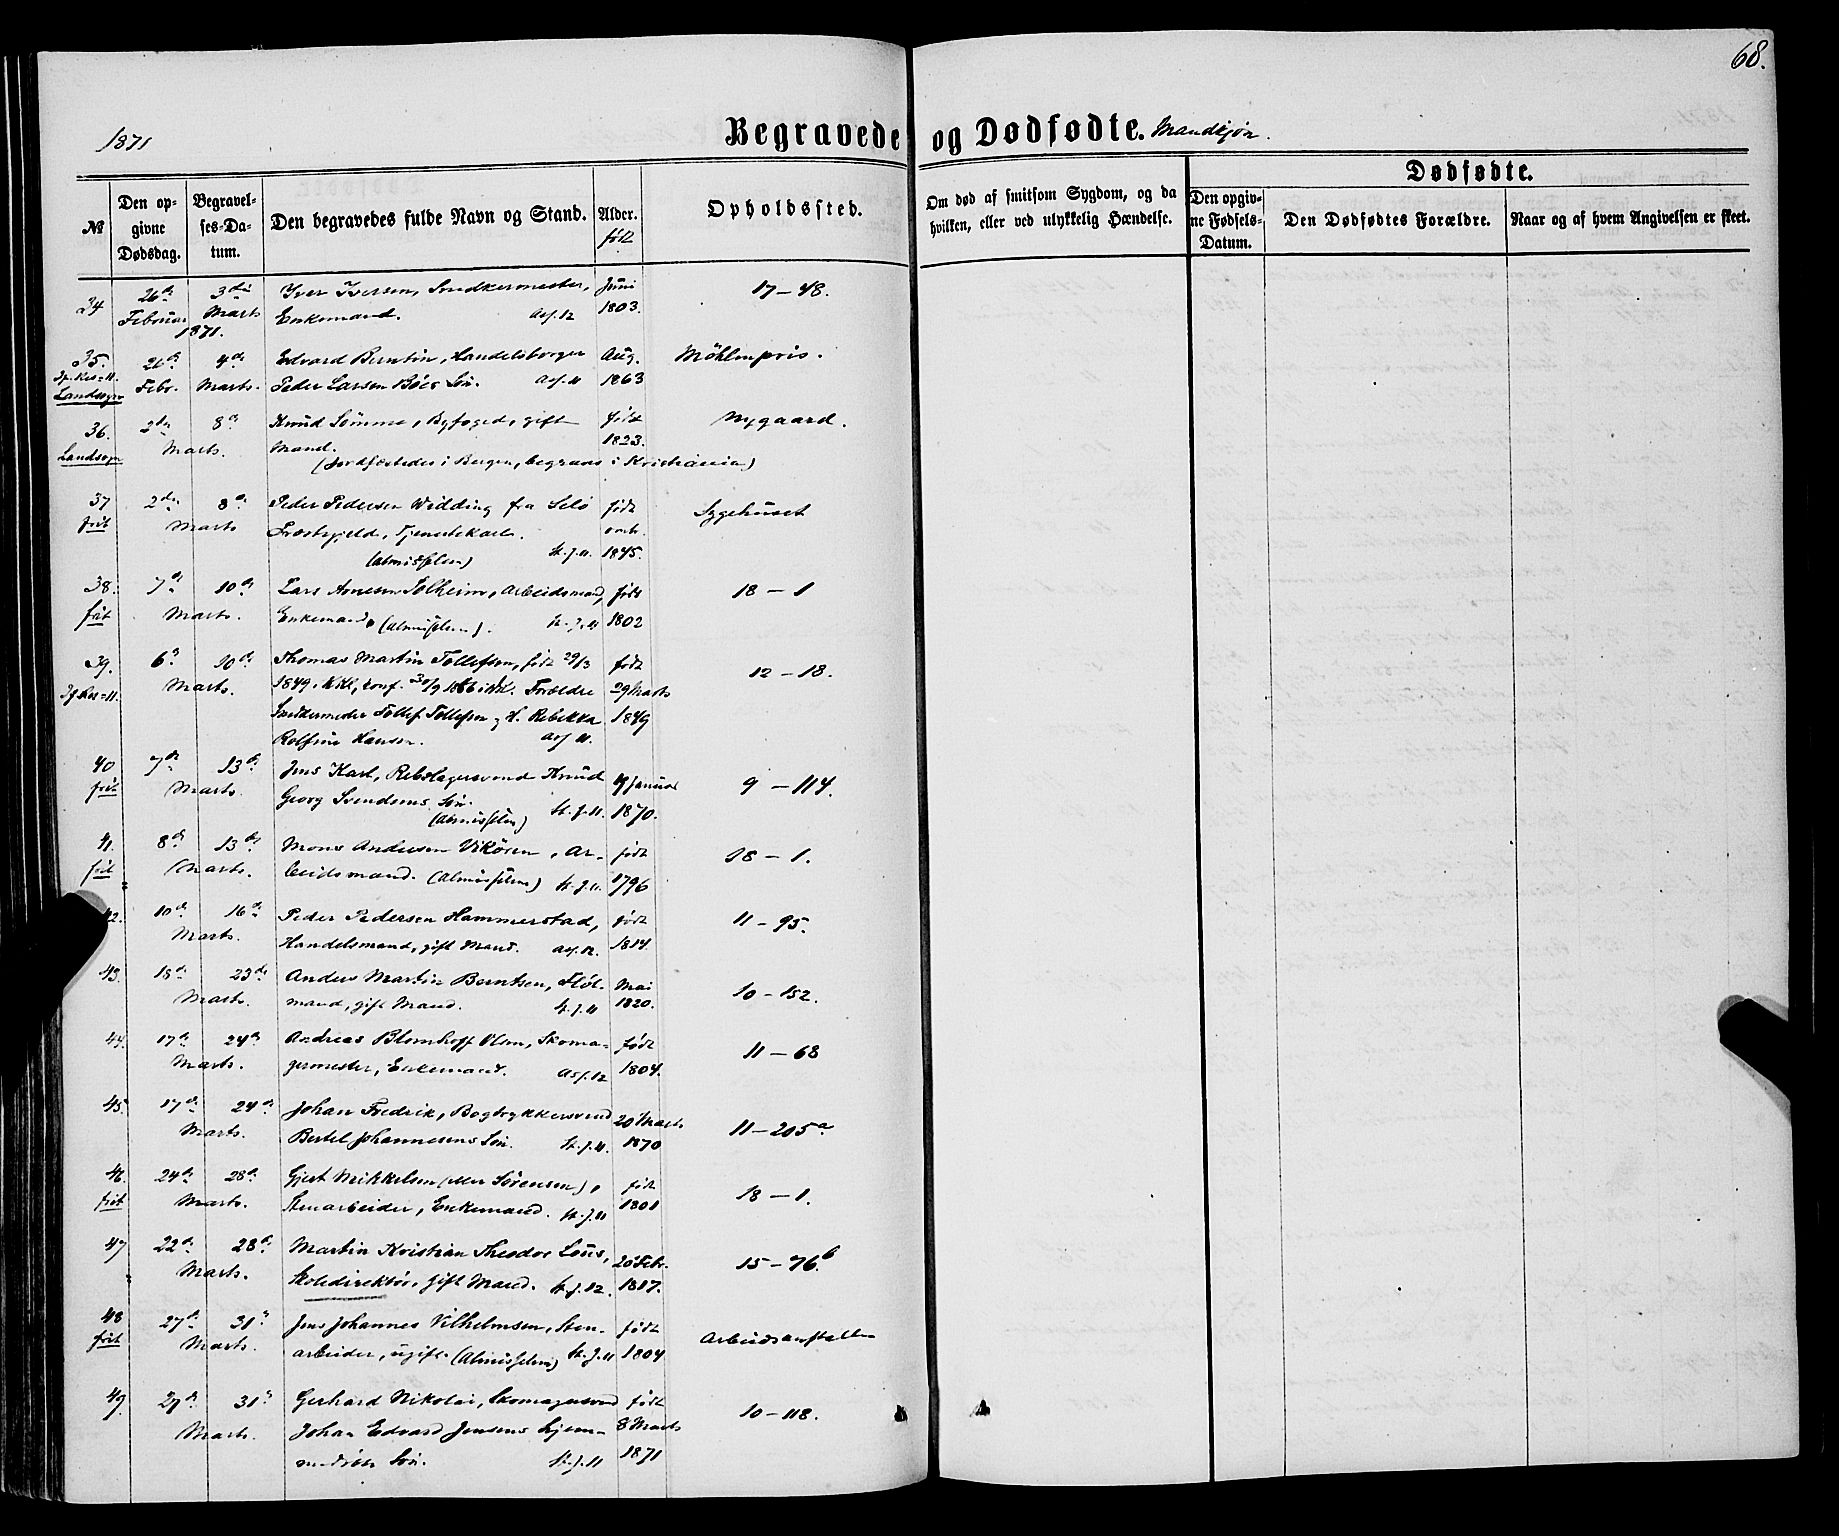 68.
1871
Begravede og Dødfødte. Mandkjøn.
№
Den opgivne Dødsdag.
Begravelses-Datum.
Den begravedes fulde Navn og Stand.
Alder. født
Opholdssted.
Om død af smitsom Sygdom, og da hvilken, eller ved ulykkelig Hændelse.
Dødfødte.
Den opgivne Fødsels-Datum.
Den Dødfødtes Forældre.
Naar og af hvem Angivelsen er skeet.
34 26de 3die Iver Iversen, Snedkermester, Juni 17–48.
Februar Marts Enkemand. Ass. 12 1803.
1871.
35. 26de 4de Edvard Berntin, Handelsborger Aug. Møhlenpris.
Febr. Marts. Peder Larsen Bøes Søn. Ass. 11 1863
Landsogn
36. 2den 8de Knud Sømme, Byfoged, gift født Nygaard.
Landsogn Marts. Mand. 1823.
(Jordfæstedes i Bergen, begraves i Kristiania)
37 2den 8de Peder Pedersen Widding fra Selø født Sygehuset
frit Marts Præstegjeld, Tjenestekarl. omtr.
(Almisselem) St. J. 11. 1845.
38. 7de 10de Lars Arnesen Solheim, Arbeidsmand, født 18–1
frit Marts. Enkemand, (Almisselem). St. J. 11 1802
39. 6te 10de Thomas Martin Tollefsen, født 29/3 født 12–18.
Marts. 1849 i KKl, conf. 30/9 1866 i NK. Forældre 29 Marts
Snedkermester Tollef Tollefsen og H. Rebekka 1849
Rolfine Hansen. Ass 11.
40 7de 13de Jens Karl, Rebslagersvend Knud 19 Januar 9–114.
frit Marts. Georg Svendsens Søn. St. J. 11. 1870.
(Almisselem)
41. 8de 13de Mons Andersen Vikøren, Ar- født 18–1.
frit Marts. beidsmand. (Almisselem) St. J. 11. 1796
42. 10de 16de Peder Pedersen Hammerstad, født 11–95.
Marts. Handelsmand, gift Mand. Ass. 12. 1814.
43. 18de 23de Anders Martin Berntsen, Fløt- Mai 10–152.
Marts. mand, gift Mand. St. J. 11 1820.
44. 17de 24de Andreas Blomhoff Olsen, Skoma- født 11–68
Marts. germester, Enkemand. Ass. 12 1804.
45. 17de 24de Johan Fredrik, Bogtrykkersvend 20 Marts 11–205a
Marts. Bertel Johannesens Søn. St. J. 11. 1870
46. 24de 28de Gjert Mikkelsen (eller Sørensen), født 18–1.
frit Marts. Stenarbeider, Enkemand. St. J. 11 1801
47 22de 28de Martin Kristian Theodor Lous, 20 Febr. 15–76b
Marts. Skoledirektør, gift Mand. St. J. 12. 1817.
48 27de 31te Jens Johannes Vilhelmsen, Sten- født Arbeidsanstalten
frit Marts. arbeider, ugift. (Almisselem) St. J. 11 1804
49 27de 31te Gerhard Nikolai, Skomagersvend født 10–118.
Marts. Johan Edvard Jensens hjem- 8 Marts
medøbte Søn. St. J. 11 1871